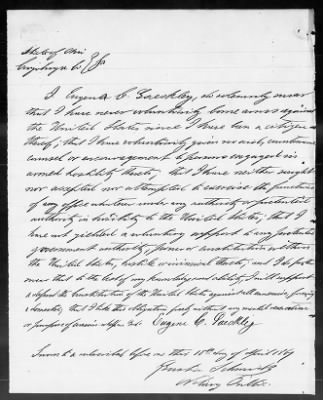 State of Ohio
Cuyahoga Co. } SS
I Eugene C. Gaeckley, do solemnly swear
that I have never voluntarily borne arms against
the United States since I have been a citizen
thereof; that I have voluntarily given no aid, countenance
counsel or encouragement to persons engaged in
armed hostility thereto; that I have neither sought
nor accepted nor attempted to exercise the functions
of any office whatever under any authority or pretended
authority in hostility to the United States; that I
have not yielded a voluntary support to any pretended
government authority, power or constitution within
the United States, hostile or inimical thereto; and I do further
swear that to the best of my knowledge and ability, I will support
& defend the Constitution of the United States against all enemies, foreign
& domestic; that I take this obligation freely without any mental reservation
or purpose of evasion so help me God. Eugene C. Gaeckley
Sworn to & subscribed before me this 18th day of April 1867
Notary Public